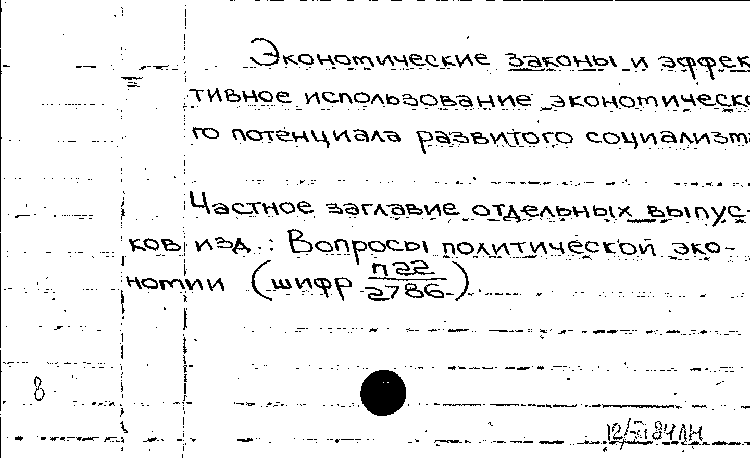 Экономические законы и эффек
тивное использование экономическо
го потенциала развитого социализм
Частное заглавие отдельных выпус-
ков изд.: Вопросы политической эко-
номии (шифр п22/2786)
8